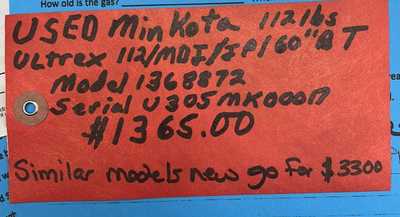 How old is the gas?
USED Minn Kota 112 lbs
ULtrex 112/MDI/IP/60" BT
Model 1368872
Serial U305 MK000
$1365.00
Similar models new go for $3300